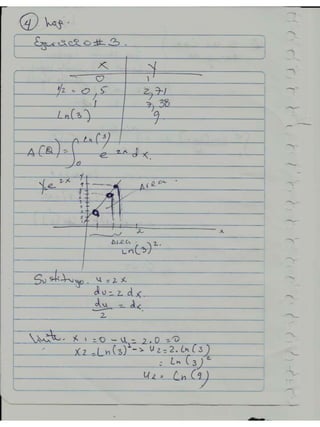 ④ hoja.
Ejercicio #3.
x y
0 1
1/2 = 0,5 2,71
1 7,38
Ln(3) 9
A(R) = ∫₀^{Ln(3)} e^{2x} dx.
y=e^{2x} Area.
x
Area
Ln(3)².
Sustituyo. u = 2x
du = 2 dx
du/2 = dx.
Limite. x1 = 0 → u1 = 2.0 = 0
x2 = Ln(3) → u2 = 2.Ln(3)
= Ln(3)²
u2 = Ln(9)